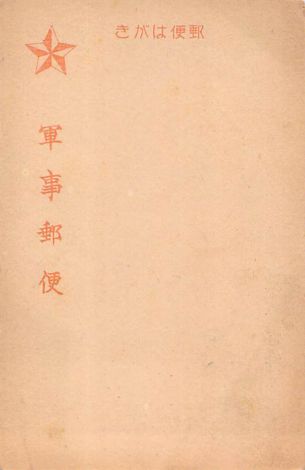 郵便はがき
軍事郵便